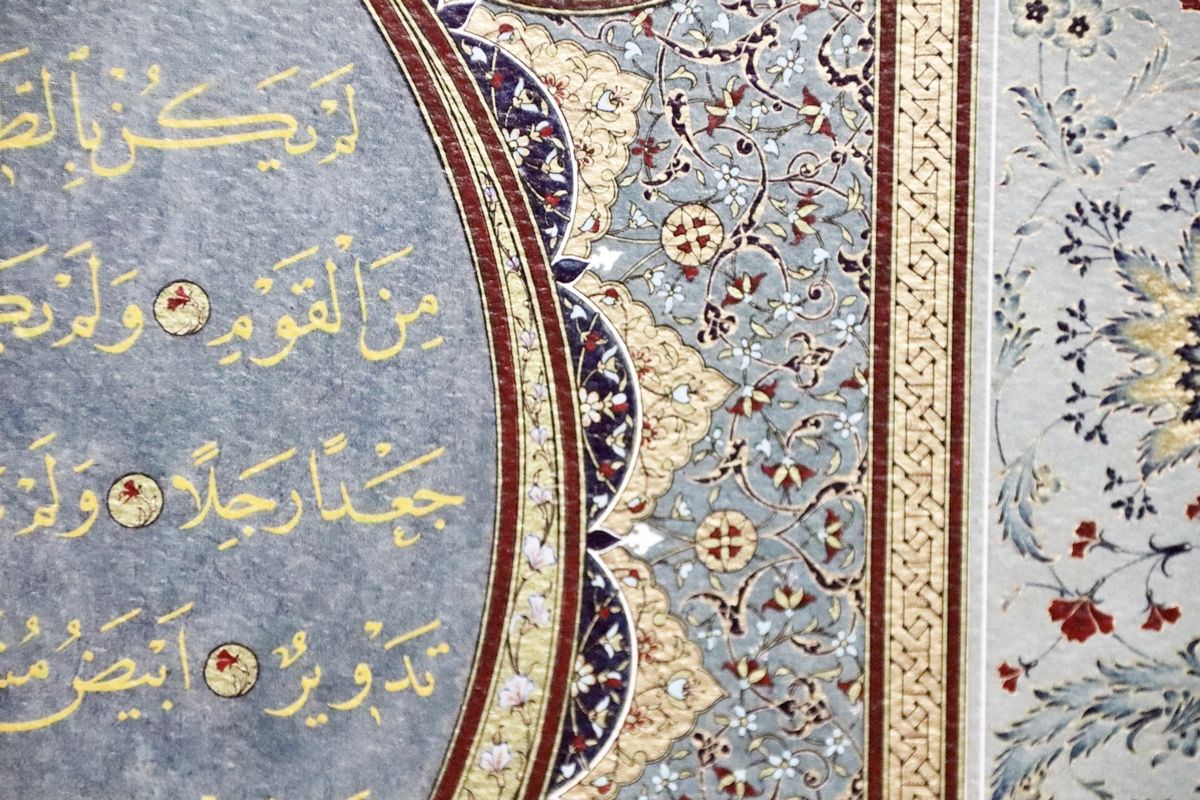 لَمْ يَكُنْ بِالطَّ
مِنَ الْقَوْمِ وَلَمْ يَكُ
جَعْدًا رَجِلًا وَلَمْ
تَدْوِيرٌ اَبْيَضُ مُشْ